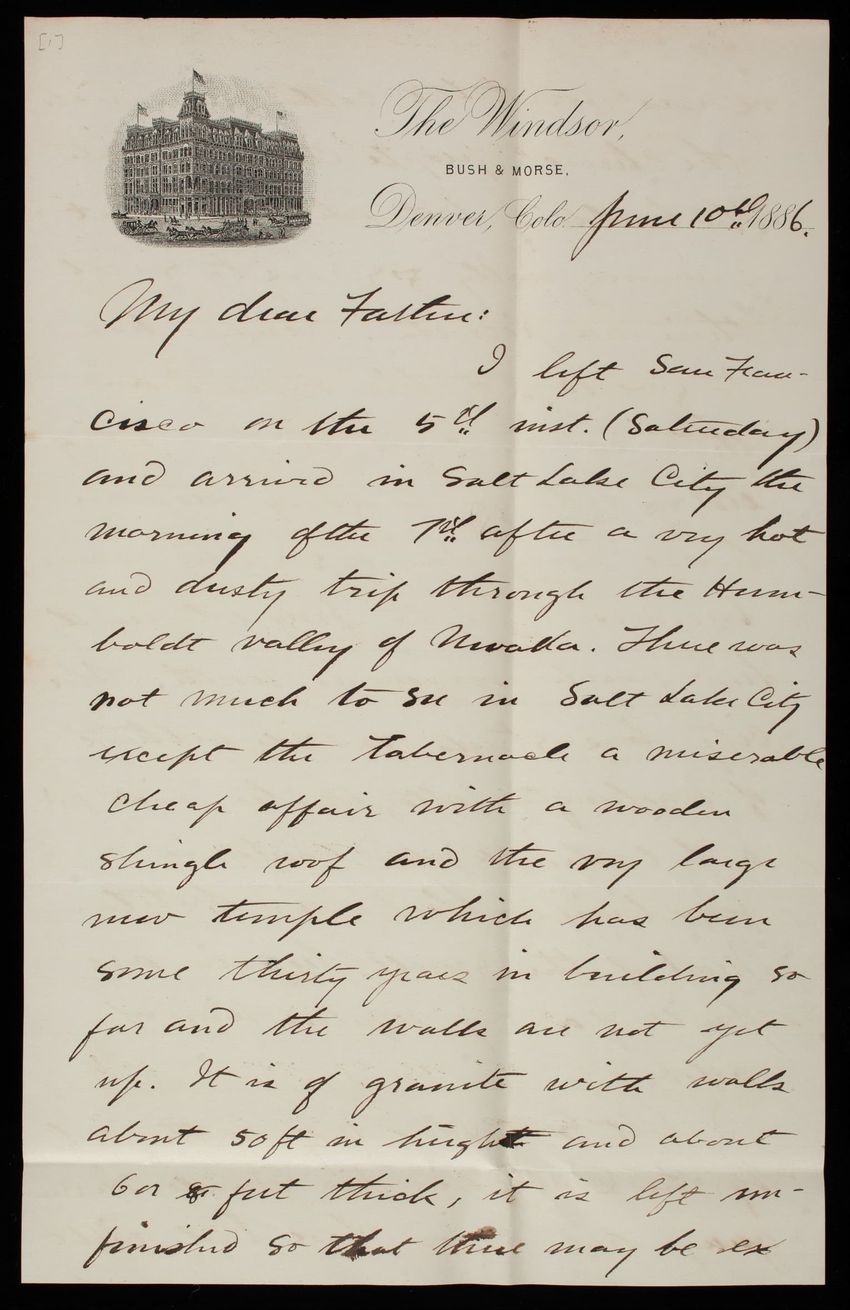 [1]
The Windsor,
BUSH & MORSE,
Denver, Colo. June 10th 1886.
My dear Father:
I left San Fran-
cisco on the 5th inst. (Saturday)
and arrived in Salt Lake City the
morning of the 7th after a very hot
and dusty trip through the Hum-
boldt valley of Nevada. There was
not much to see in Salt Lake City
except the Tabernacle a miserable
cheap affair with a wooden
shingle roof and the very large
new temple which has been
some thirty years in building so
far and the walls are not yet
up. It is of granite with walls
about 50 ft in height and about
6 or 8 feet thick, it is left un-
finished so that there may be ex